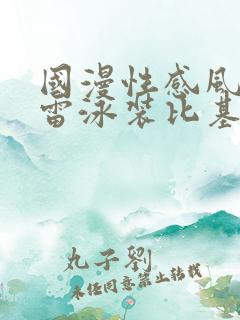 國漫性感風
雷泳裝比基
丸子劉
未任同意禁止轉載